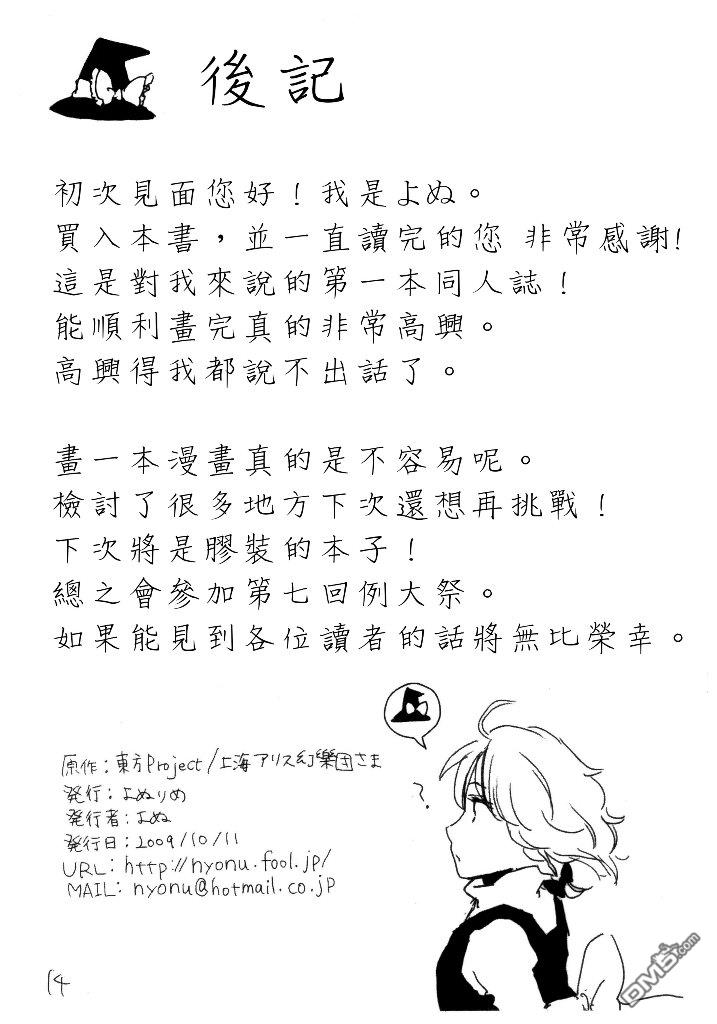 後記
初次見面您好！我是よぬ。
買入本書，並一直讀完的您 非常感謝!
這是對我來說的第一本同人誌！
能順利畫完真的非常高興。
高興得我都說不出話了。
畫一本漫畫真的是不容易呢。
檢討了很多地方下次還想再挑戰！
下次將是膠裝的本子！
總之會參加第七回例大祭。
如果能見到各位讀者的話將無比榮幸。
原作：東方Project/上海アリス幻樂団さま
発行：よぬりめ
発行者：よぬ
発行日：2009/10/11
URL: http://nyonu.fool.jp/
MAIL: nyonu@hotmail.co.jp
?
14
DM5.com